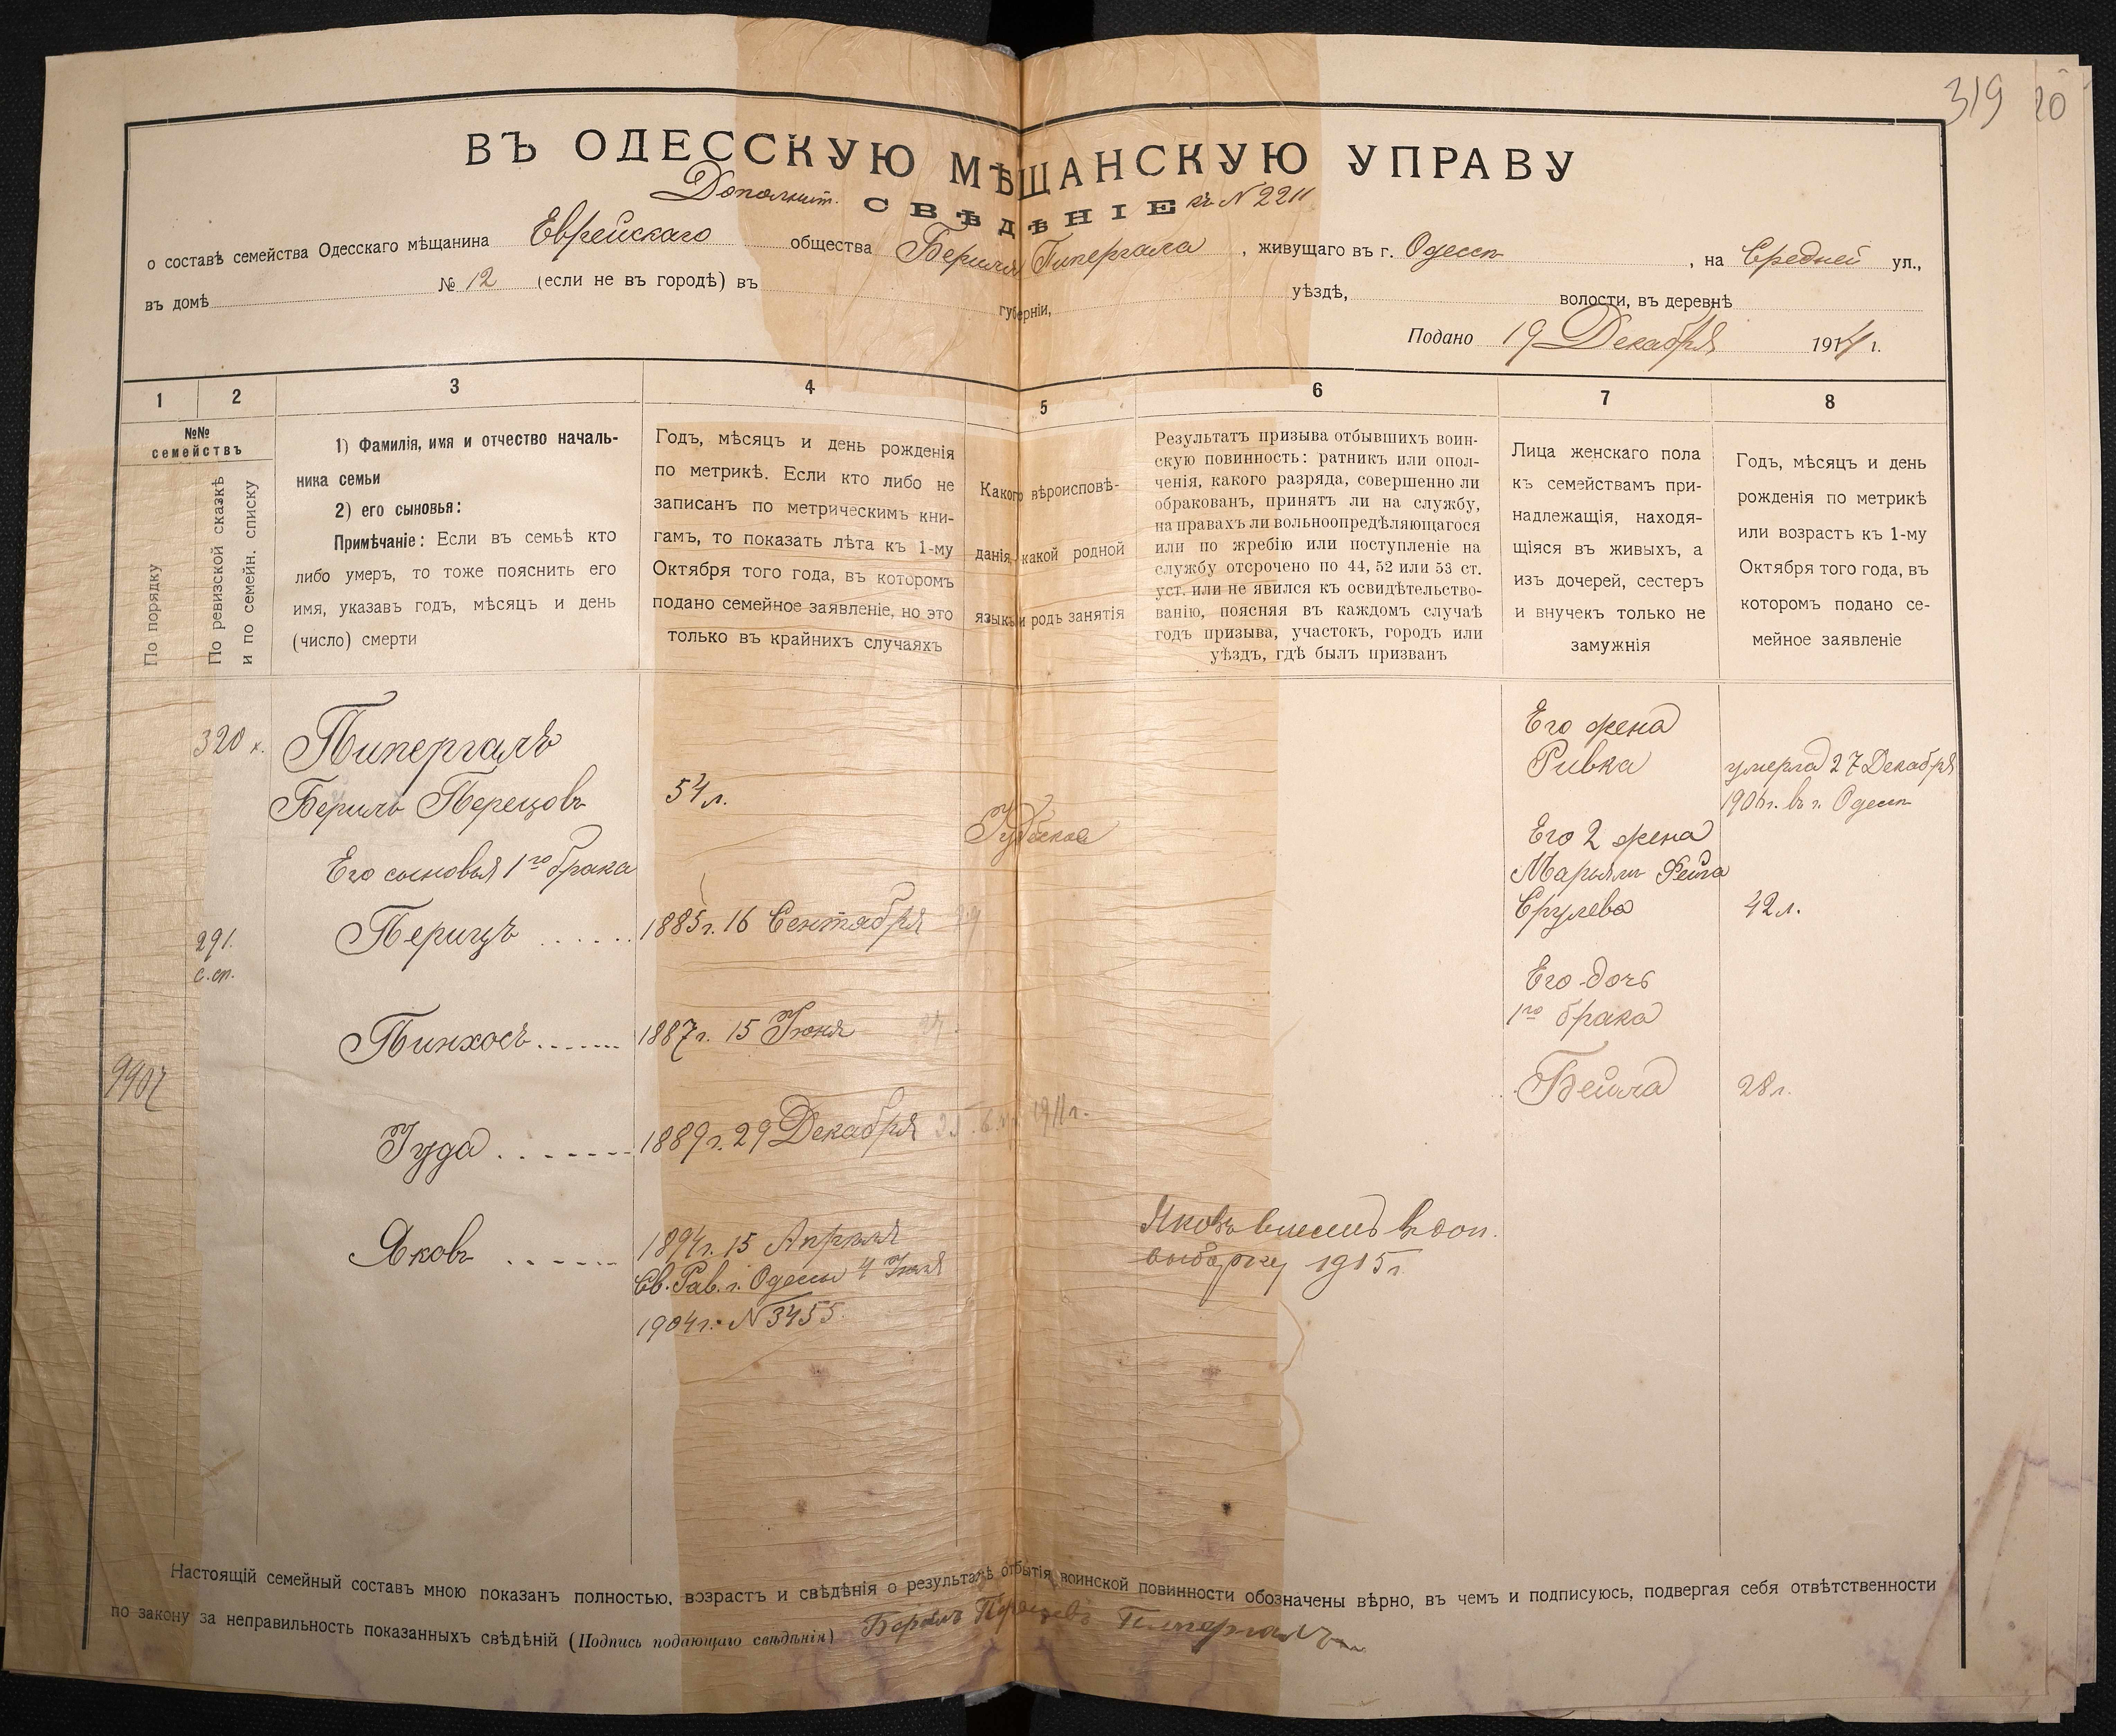 319
20
ВЪ ОДЕССКУЮ МѢЩАНСКУЮ УПРАВУ
Дополнит. СВѢДѢНІЕ къ N 2211
о составѣ семейства Одесскаго мѣщанина Еврейскаго общества Бериля Пипергаля, живущаго въ г. Одессѣ, на Средней ул.,
въ домѣ № 12 (если не въ городѣ) въ губерніи, уѣздѣ, волости, въ деревнѣ
Подано 19 Декабря 1914 г.
1 2 3 4 5 6 7 8
№№
семействъ
По порядку
По ревизской сказкѣ
и по семейн. списку
1) Фамилія, имя и отчество началь-
ника семьи
2) его сыновья:
Примѣчаніе: Если въ семьѣ кто
либо умеръ, то тоже пояснить его
имя, указавъ годъ, мѣсяцъ и день
(число) смерти
Годъ, мѣсяцъ и день рожденія
по метрикѣ. Если кто либо не
записанъ по метрическимъ кни-
гамъ, то показать лѣта къ 1-му
Октября того года, въ которомъ
подано семейное заявленіе, но это
только въ крайнихъ случаяхъ
Какого вѣроисповѣ-
данія, какой родной
языкъ и родъ занятія
Результатъ призыва отбывшихъ воин-
скую повинность: ратникъ или опол-
ченія, какого разряда, совершенно ли
обракованъ, принятъ ли на службу,
на правахъ ли вольноопредѣляющагося
или по жребію или поступленіе на
службу отсрочено по 44, 52 или 53 ст.
уст. или не явился къ освидѣтельство-
ванію, поясняя въ каждомъ случаѣ
годъ призыва, участокъ, городъ или
уѣздъ, гдѣ былъ призванъ
Лица женскаго пола
къ семействамъ при-
надлежащія, находя-
щіяся въ живыхъ, а
изъ дочерей, сестеръ
и внучекъ только не
замужнія
Годъ, мѣсяцъ и день
рожденія по метрикѣ
или возрастъ къ 1-му
Октября того года, въ
которомъ подано се-
мейное заявленіе
320 к.
Пипергаль
Бериль Перецовъ
54 л.
Іудейское
Его жена
Ривка
умерла 27 Декабря
1906 г. въ г. Одессѣ
Его сыновья 1го брака
Его 2 жена
Марьямъ Фейга
Срулева
42 л.
291.
с. сп.
Перицъ ......
1885 г. 16 Сентября 29
Его дочь
1го брака
Пинхосъ.......
1887 г. 15 Іюня
Бейла
28 г.
9907
Іуда ........
1889 г. 29 Декабря 1911 г.
Яковъ ......
1894 г. 15 Апрѣля
Св. Рав. г. Одессы 4 Іюля
1904 г. N 3455.
Яковъ внесенъ въ доп.
выборку 1915 г.
Настоящій семейный составъ мною показанъ полностью, возрастъ и свѣдѣнія о результатѣ отбытія воинской повинности обозначены вѣрно, въ чемъ и подписуюсь, подвергая себя отвѣтственности
по закону за неправильность показанныхъ свѣдѣній (Подпись подающаго свѣдѣнія) Бериль Перецовъ Пипергаль